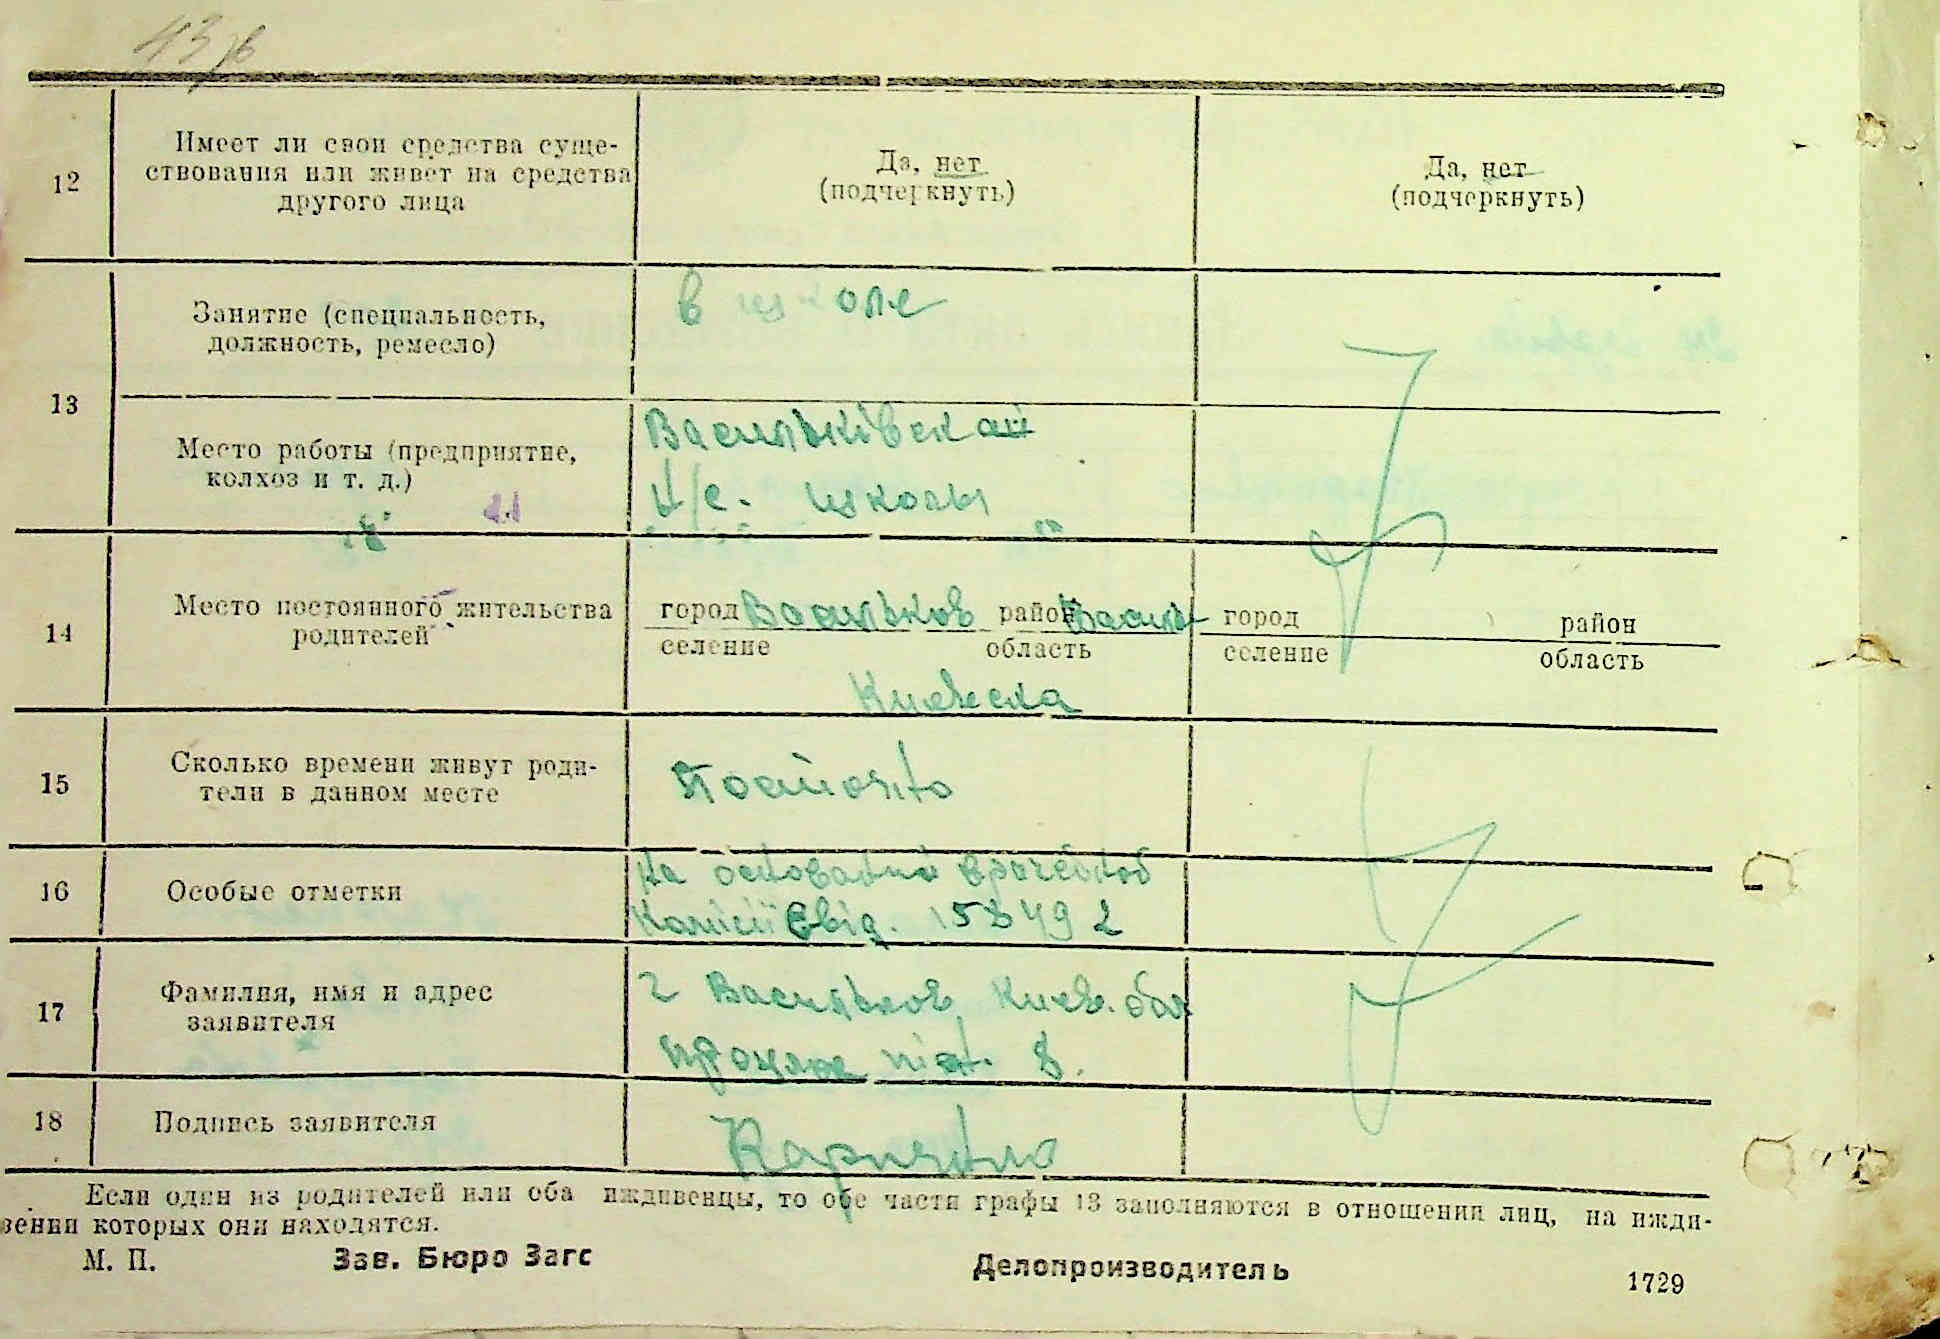 43
12
Имеет ли свои средства суще-
ствования или живет на средства
другого лица
Да, нет
(подчеркнуть)
Да, нет
(подчеркнуть)
13
Занятие (специальность,
должность, ремесло)
в школе
Место работы (предприятие,
колхоз и т. д.)
Васильківская
н/с. школы
14
Место постоянного жительства
родителей
город Васильков район Василь
селение область
Киевска
город район
селение область
15
Сколько времени живут роди-
тели в данном месте
Постоянно
16
Особые отметки
на основании врачебной
Комісіі Свід. 158492
17
Фамилия, имя и адрес
заявителя
г Васильков Киев. обл
8.
18
Подпись заявителя
Если один из родителей или оба иждивенцы, то обе части графы 13 заполняются в отношении лиц, на ижди-
вении которых они находятся.
М. П. Зав. Бюро Загс Делопроизводитель
1729